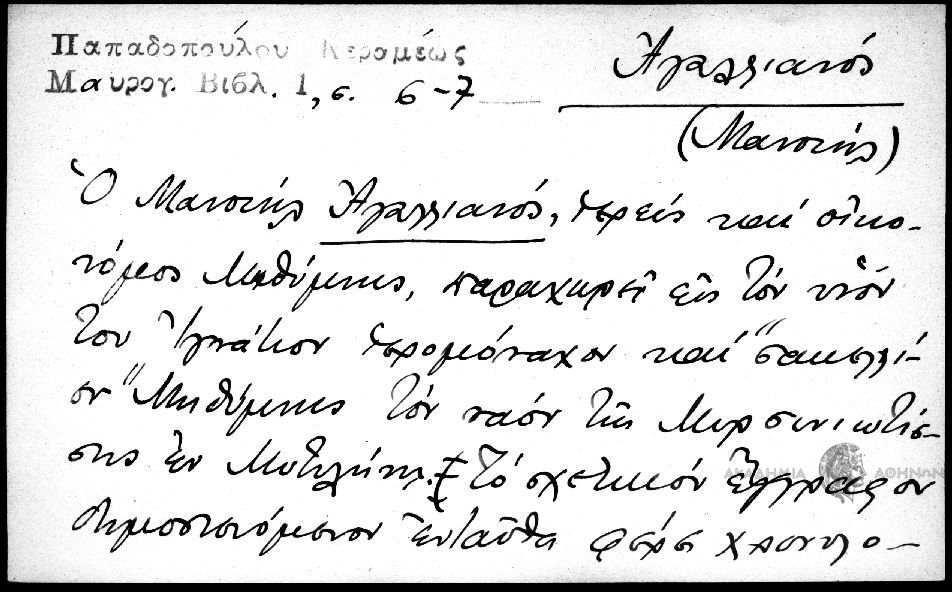 Παπαδοπούλου Κεραμέως
Μαυρογ. Βιβλ. 1, σ. 6-7
Ἀγαλλιανός
(Μανουήλ)
Ὁ Μανουήλ Ἀγαλλιανός, ἱερεύς καί οἰκο-
νόμος Μηθύμνης, παραχωρεῖ εἰς τόν υἱόν
του Ἰγνάτιον ἱερομόναχον καί "σακελλί-
ον" Μηθύμνης τόν ναόν τῆς Μυρσινιωτίσ-
σης ἐν Μυτιλήνῃ. Τό σχετικόν ἔγγραφον
δημοσιευόμενον ἐνταῦθα φέρει χρονολο-
ΑΚΑΔΗΜΙΑ ΑΘΗΝΩΝ